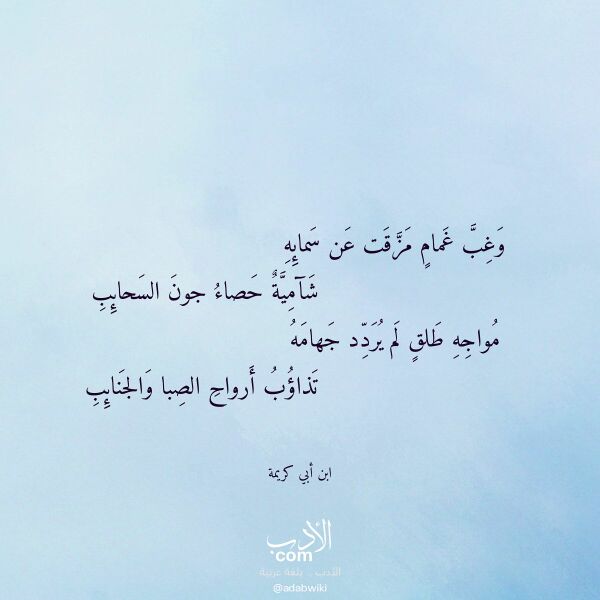 وَغِبَّ غَمامٍ مَزَّقَت عَن سَمائِهِ
شَآمِيَّةٌ حَصاءُ جونَ السَحائِبِ
مُواجِهِ طَلقٍ لَم يُرَدِّد جَهامَهُ
تَذاؤُبُ أَرواحِ الصِبا وَالجَنائِبِ
ابن أبي كريمة
الأدب
com
الأدب .. بلغة عربية
@adabwiki